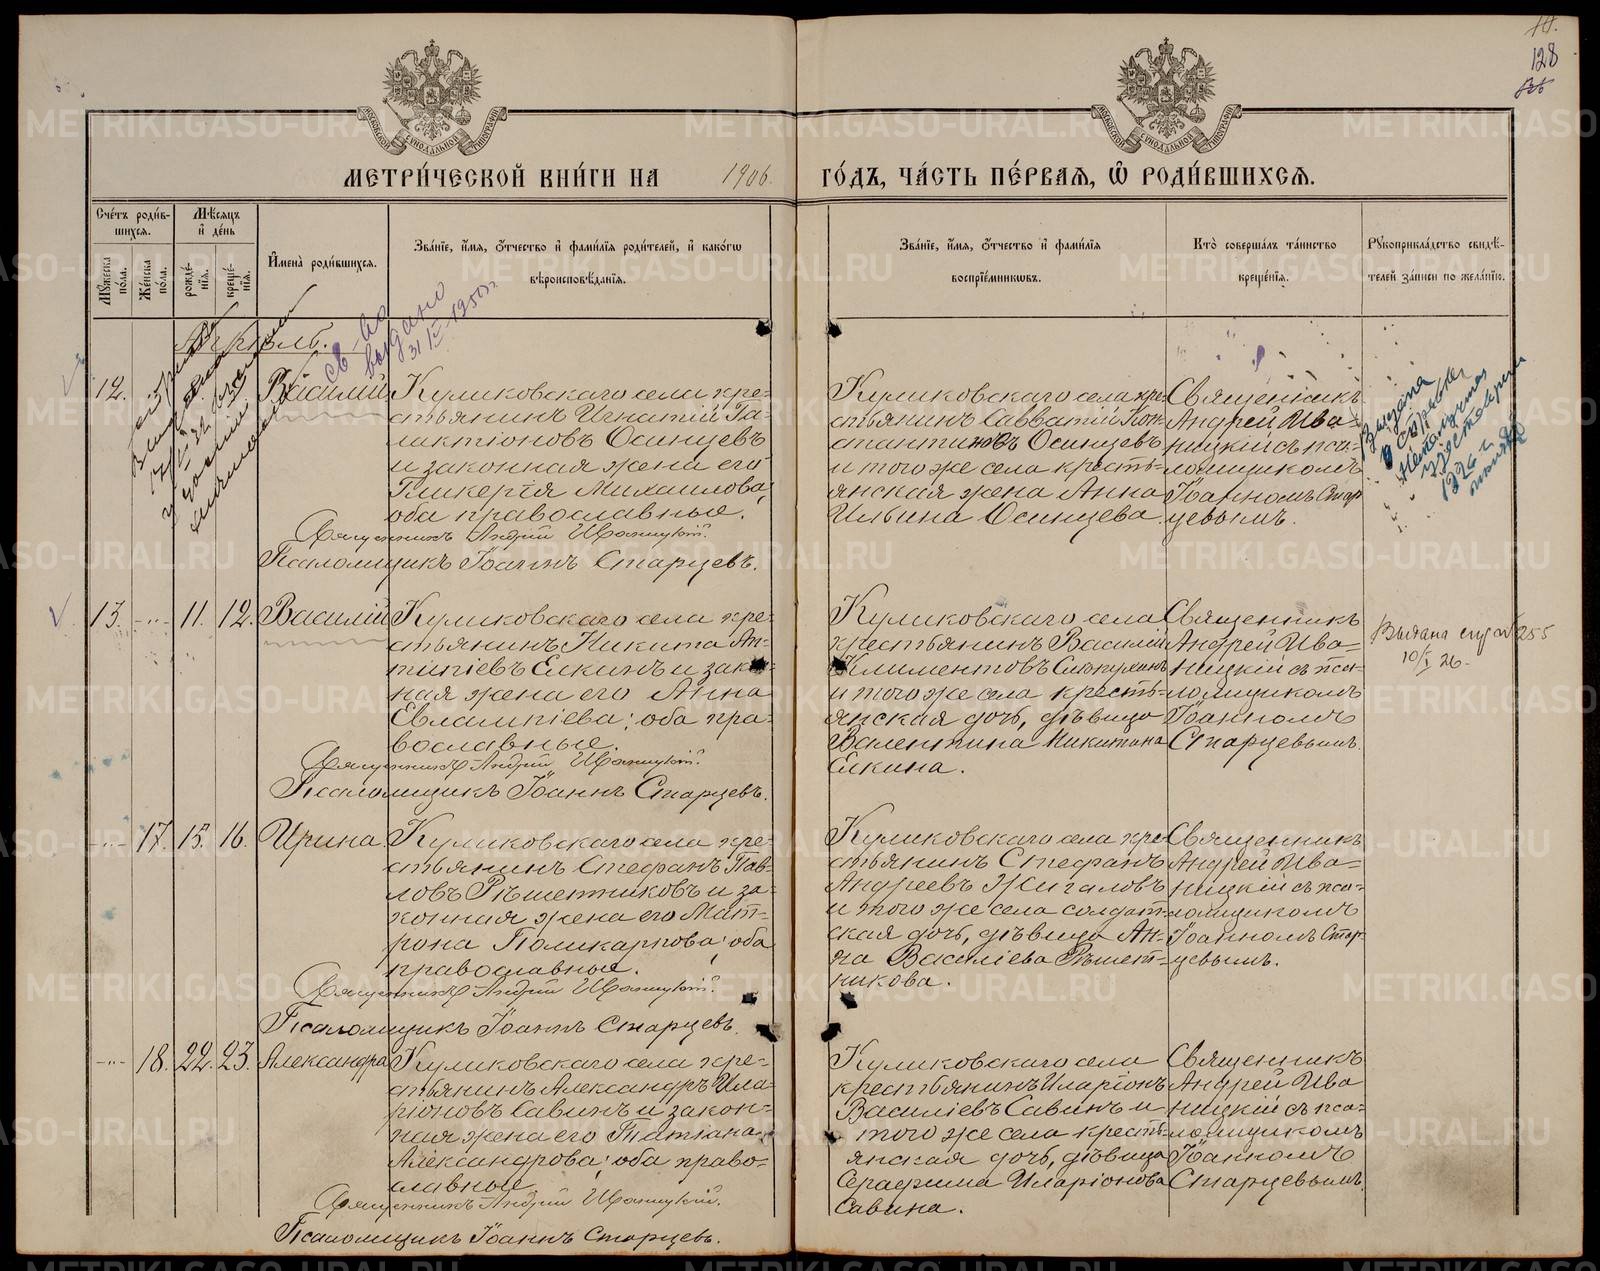 128
МОСКОВСКОЙ СѴНОДАЛЬНОЙ ТИПОГРАФІИ
МОСКОВСКОЙ СѴНОДАЛЬНОЙ ТИПОГРАФІИ
МЕТРИ́ЧЕСКОЙ КНИ́ГИ НА 1906. ГО́ДЪ, ЧА́СТЬ ПЕ́РВАѦ, Ѽ РОДИ́ВШИХСѦ.
Сче́тъ роди́в-
шихсѧ.
Мѣ́сѧцъ
и҆ де́нь
Мꙋ́жеска
по́ла.
Же́нска
по́ла.
рожде́-
нїѧ.
креще́-
нїѧ.
И҆мена̀ роди́вшихсѧ.
Зва́нїе, и҆́мѧ, ѻ҆́тчество и҆ фами́лїѧ роди́телей, и҆ како́гѡ
вѣроисповѣ́данїѧ.
Зва́нїе, и҆́мѧ, ѻ҆́тчество и҆ фами́лїѧ
воспрїе́мникѡвъ.
Кто̀ соверша́лъ та́инство
креще́нїѧ.
Рꙋкоприкла́дство свидѣ́-
телей за́писи по жела́нїю.
св-во
выдано
31 IV-1950 г.
Апрѣль.
12.
Василій
Куликовскаго села кре-
стьянинъ Игнатій Га-
лактіоновъ Осинцевъ
и законная жена его
Гликерія Михаилова;
оба православные.
Священникъ Андрей Иваницкій.
Псаломщикъ Іоаннъ Старцевъ.
Куликовскаго села кре-
стьянинъ Савватій Кон-
стантиновъ Осинцевъ
и того же села кресть-
янская жена Анна
Ильина Осинцева.
Священникъ
Андрей Ива-
ницкій съ пса-
ломщикомъ
Іоанномъ Стар
цевымъ.
13. -"- 11. 12. Василій
Куликовскаго села кре-
стьянинъ Никита Ан-
типіевъ Елкинъ и закон-
ная жена его Анна
Евлампіева; оба пра-
вославные.
Священникъ Андрей Иваницкій.
Псаломщикъ Іоаннъ Старцевъ.
Куликовскаго села
крестьянинъ Василій
Климентовъ
и того же села кресть-
янская дочь, дѣвица
Валентина Никитина
Елкина.
Священникъ
Андрей Ива-
ницкій съ пса-
ломщикомъ
Іоанномъ
Старцевымъ.
Выдана 255
10/I 26.
-"- 17. 15. 16. Ирина.
Куликовскаго села кре-
стьянинъ Стефанъ Пав-
ловъ Рѣшетниковъ и за-
конная жена его Мат-
рона Поликарпова; оба
православные.
Священникъ Андрей Иваницкій.
Псаломщикъ Іоаннъ Старцевъ.
Куликовскаго села кре
стьянинъ Стефанъ
Андреевъ Жигаловъ
и того же села солдат-
ская дочь, дѣвица Ан-
на Василіева Рѣшет-
никова.
Священникъ
Андрей Ива-
ницкій съ пса-
ломщикомъ
Іоанномъ Стар-
цевымъ.
-"- 18. 22. 23. Александра
Куликовскаго села кре-
стьянинъ Александръ Ила-
ріоновъ Савинъ и закон-
ная жена его Татіана
Александрова; оба право-
славные
Священникъ Андрей Иваницкій.
Псаломщикъ Іоаннъ Старцевъ.
Куликовскаго села
крестьянинъ Иларіонъ
Василіевъ Савинъ и
того же села кресть-
янская дочь, дѣвица
Серафима Иларіонова
Савина.
Священникъ
Андрей Ива
ницкій съ пса-
ломщикомъ
Іоанномъ
Старцевымъ.
METRIKI.GASO-URAL.RU